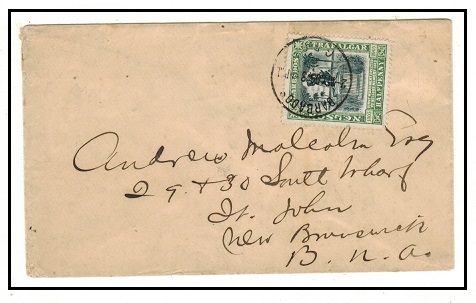 TRAFALGAR
HALF PENNY
BARBADOS
Andrew Malcolm Esq
29 & 30 South Wharf
St. John
New Brunswick
B. N. A.